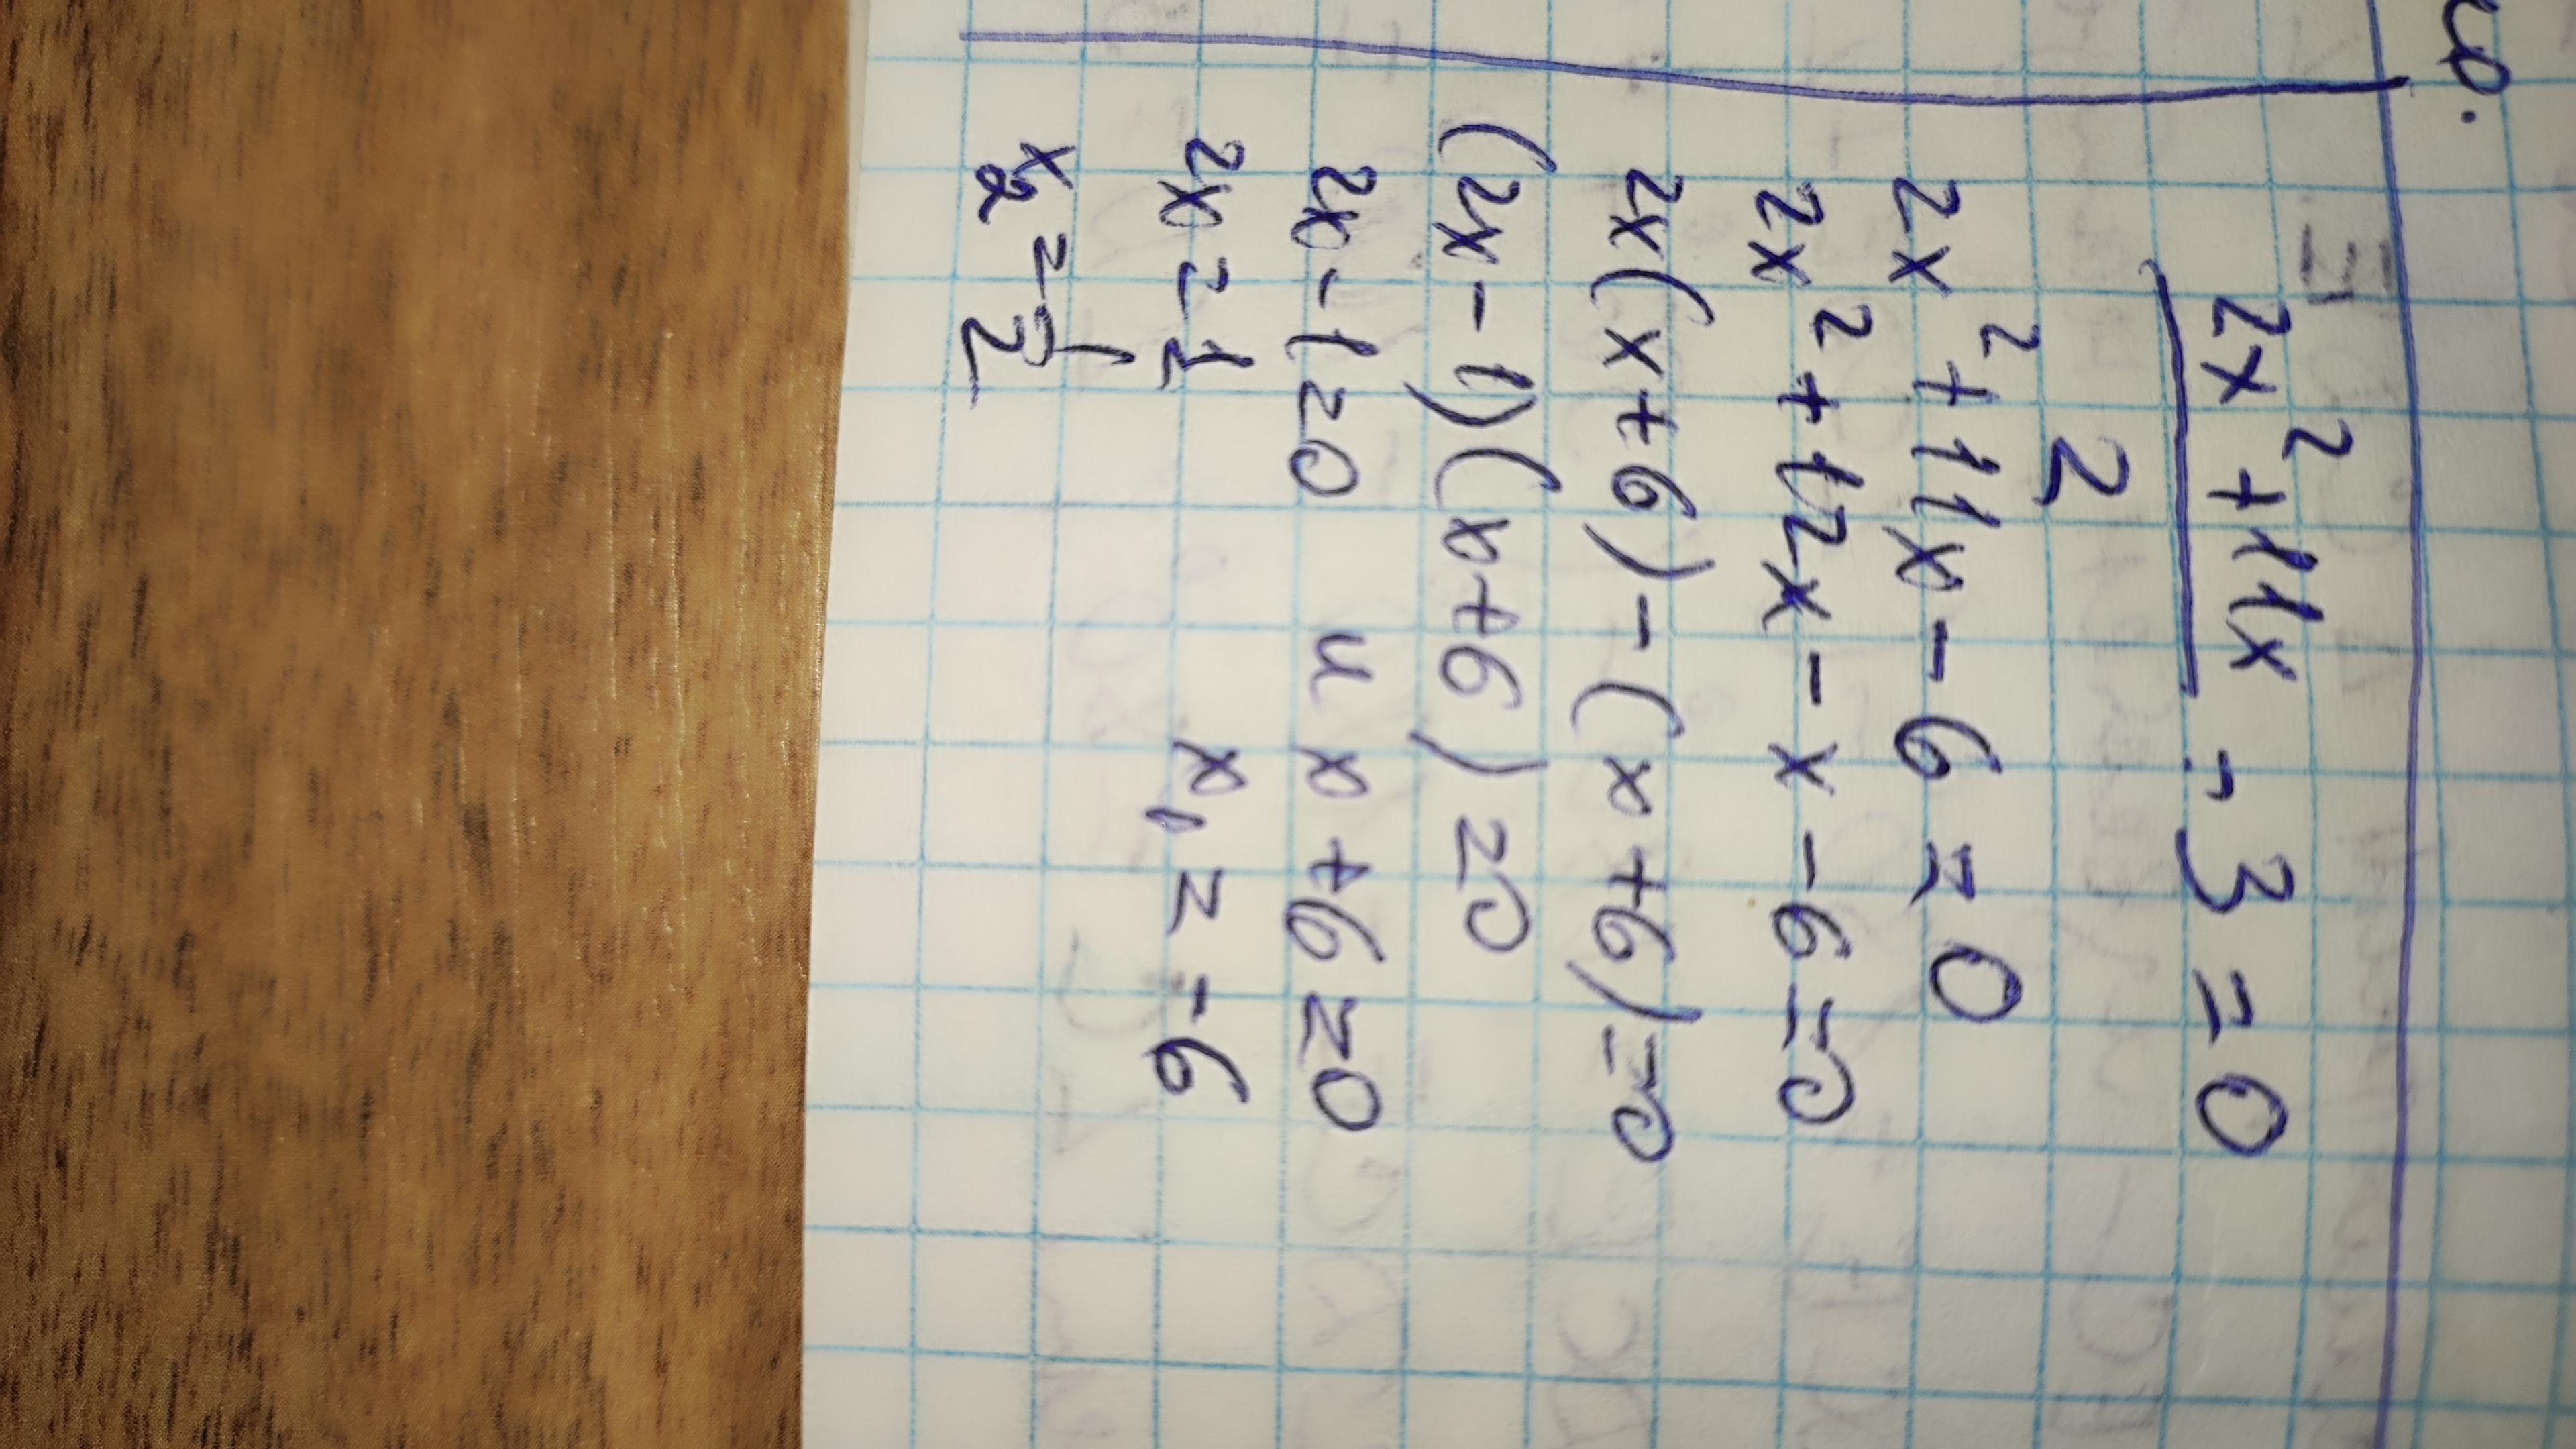 2x² + 11x
――― - 3 = 0
2
2x² + 11x - 6 = 0
2x² + 12x - x - 6 = 0
2x(x+6) - (x+6) = 0
(2x - 1)(x+6) = 0
2x - 1 = 0 и x + 6 = 0
2x = 1 x₁ = -6
x₂ = 1/2